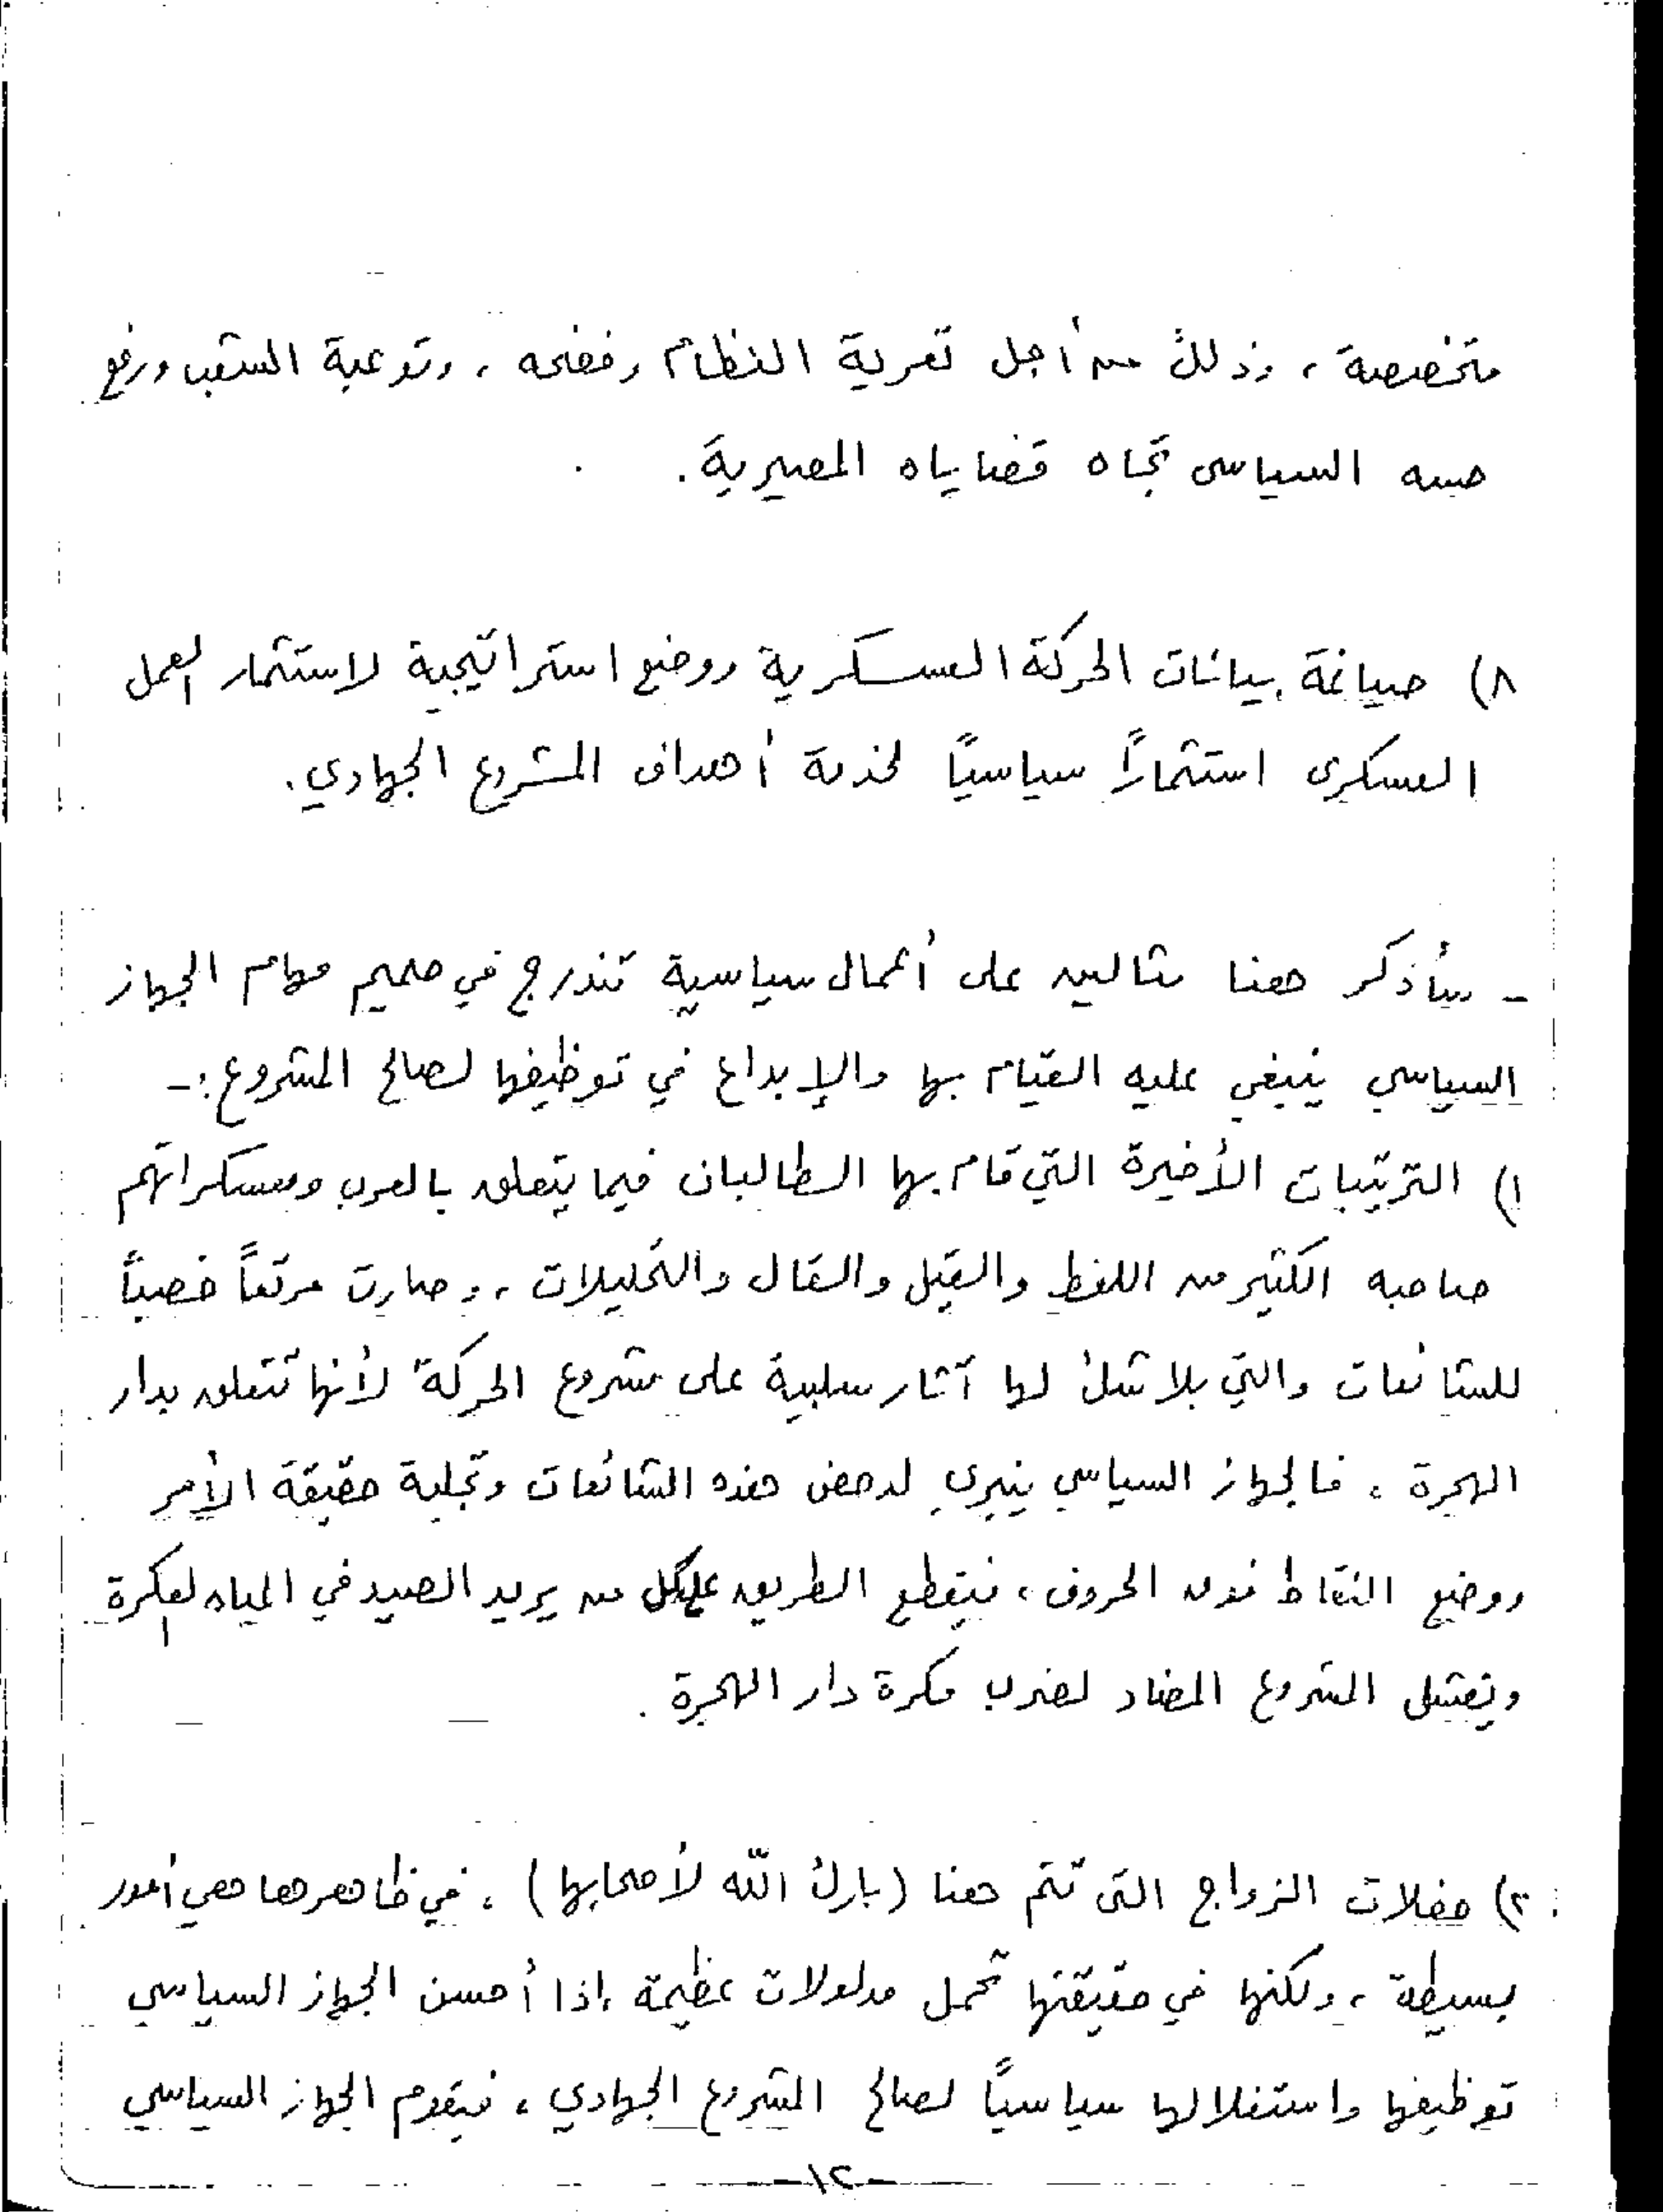 متخصصة ، وذلك من أجل تعرية النظام وفضحه ، وتوعية الشعب ورفع
حسه السياسى تجاه قضاياه المصيرية .
٨) صياغة بيانات الحركة العسكرية ووضع استراتيجية لاستثمار العمل
العسكرى استثماراً سياسياً لخدمة أهداف المشروع الجهادي .
- سأذكر هنا مثالين على أعمال سياسية تندرج في صميم مهام الجهاز
السياسي ينبغي عليه القيام بها والإبداع في توظيفها لصالح المشروع :-
١) الترتيبات الأخيرة التي قام بها الطالبان فيما يتعلق بالعرب ومعسكراتهم
صاحبه الكثير من اللغط والقيل والقال والتحليلات ، وصارت مرتعاً خصباً
للشائعات والتي بلا شك لها آثار سلبية على مشروع الحركة لأنها تتعلق بدار
الهجرة ، فالجهاز السياسي ينبري لدحض هذه الشائعات وتجلية حقيقة الأمر
ووضع النقاط فوق الحروف ، فيقطع الطريق على كل من يريد الصيد في المياه العكرة
ويفشل المشروع المضاد لضرب فكرة دار الهجرة .
٢) حفلات الزواج التى تتم هنا (بارك الله لأصحابها) ، في ظاهرها هي أمور
بسيطة ، ولكنها في حقيقتها تحمل مدلولات عظيمة إذا أحسن الجهاز السياسي
توظيفها واستغلالها سياسياً لصالح المشروع الجهادي ، فيقوم الجهاز السياسي
-١٢-